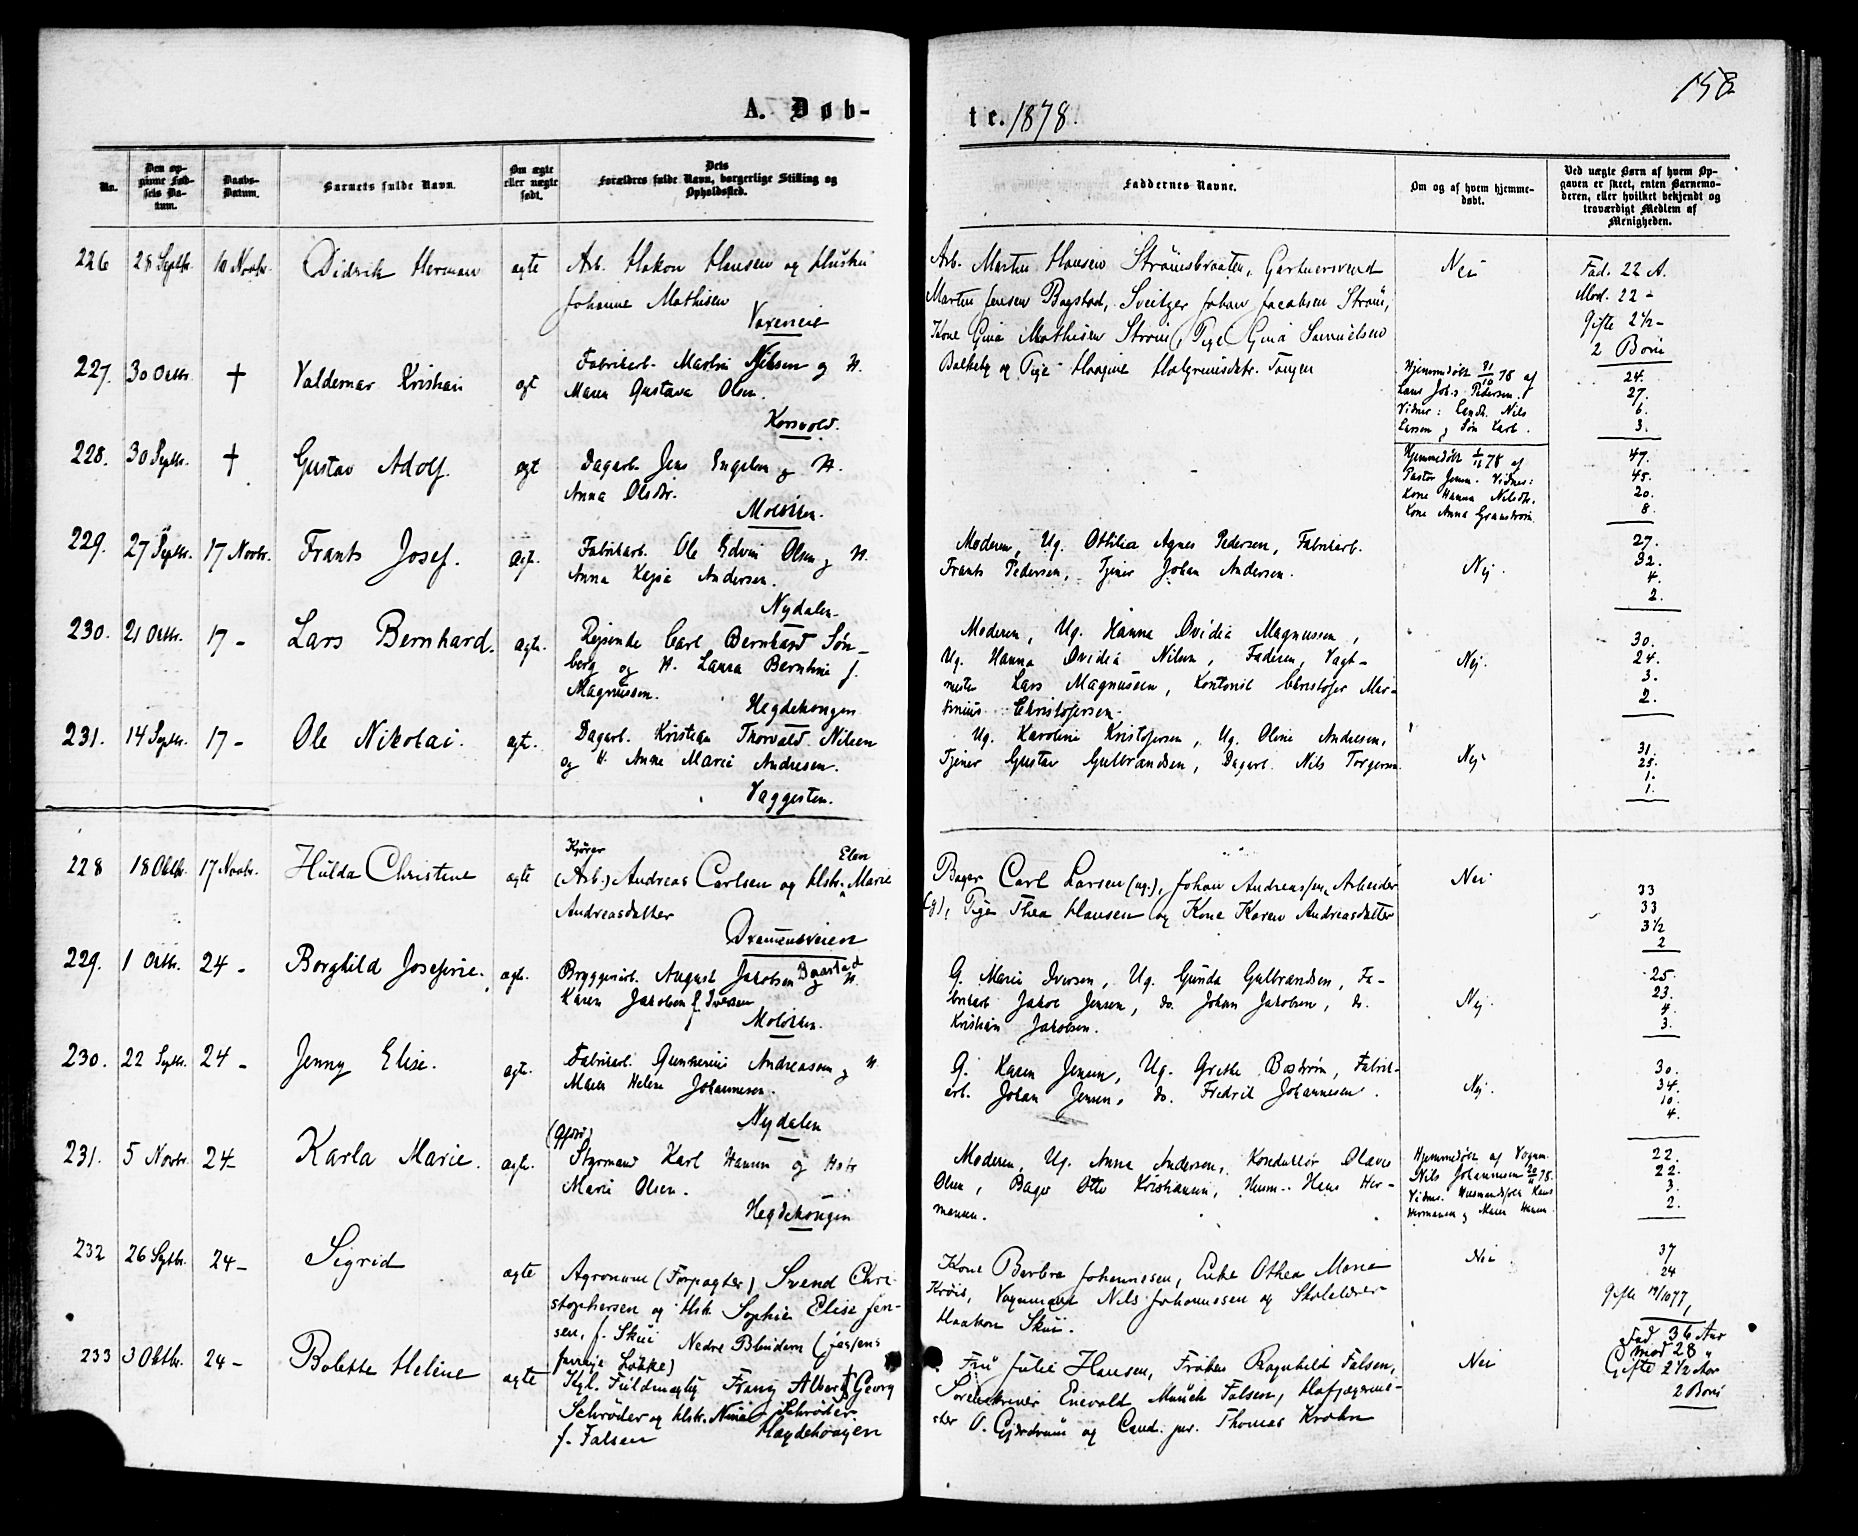 158
A. Døb-
te. 1878.
No.
Den op-
givne Fød-
sels Da-
tum.
Daabs-
Datum.
Barnets fulde Navn.
Om ægte
eller uægte
født.
Dets
Forældres fulde Navn, borgerlige Stilling og
Opholdssted.
Faddernes Navne.
Om og af hvem hjemme-
døbt.
Ved uægte Børn af hvem Op-
gaven er skeet, enten Barnemo-
deren, eller hvilket bekjendt og
troværdigt Medlem af
Menigheden.
226 28 Septbr. 10 Novbr. Didrik Herman ægte Arb. Hakon Hansen og Hustru
Johanne Mathisen
Arb. Martin Hansen Strømsbraaten, Gartnersvend
Martin Jensen Bogstad, Sveitzer Johan Jacobsen Strøm,
Kone Gina Mathisen Strøm, Pige Gina Samuelsen
Balkeby og Pige Haagine Halgrensdatr. Tangen
Nei
Fad. 22 A.
Mod. 22 -
Gifte 2½ -
2 Børn
227. 30 Octbr. + Valdemar Kristian ægt Fabrikarb. Martin Nilsen og H.
Maren Gustava Olsen.
Korsvold.
Hjemmedøbt 31/10 78 af
Lars Joh.s Pedersen.
Vidner: Nils
Larsen og Søn Carl.
24.
27.
6.
3.
228. 30 Septbr. + Gustav Adolf. ægt Dagarb. Jens Engebr. og H.
Anna Olsdtr.
Moløkken.
Hjemmedøbt 78 af
Pastor Jensen. Vidner:
Kone Hanna Nilsdtr.
Kone Anna Granstrøm.
47.
45.
20.
8.
229. 27 Septbr. 17 Novbr. Frants Josef. ægt. Fabrikarb. Ole Edvin Olsen og H.
Anna Kajsa Andersen.
Nydalen.
Moderen, Ug. Ottilia Agnes Pedersen, Fabrikarb.
Frants Pedersen, Tjener Johan Andersen.
Nej.
27.
32.
4.
2.
230. 21 Octbr. 17 - Lars Bernhard. ægte. Rejsende Carl Bernhard Søn-
berg og H. Laura Berntine f.
Magnussen.
Hegdehougen
Moderen, Ug. Hanna Ovidia Magnussen,
Ug. Hanna Ovidia Nilsen, Faderen, Vagt-
mester Lars Magnussen, Kontorist Christofer Mar-
tinius Christofersen.
Nej.
30.
24.
3.
2.
231. 14 Septbr. 17 - Ole Nikolai. ægt. Dagarb. Kristian Thorvald Nilsen
og H. Anne Marie Andresen.
Vaggesten.
Ug. Karoline Kristofersen, Ug. Oline Andresen,
Tjener Gustav Gulbrandsen, Dagarb. Nils Torgersen.
Nej.
31.
25.
1.
1.
228 18 Oktbr. 17 Novbr. Hulda Christine ægte Kjører Elen
(Arb.) Andreas Carlsen og Hstr. Marie
Andreasdatter
Dramensveien
Bager Carl Larsen (ug.), Johan Andreassen, Arbeider
(g), Pige Thea Hansen og Kone Karen Andreasdatter
Nei
33
33
3½
2
229. 1 Octbr. 24 - Borghild Josefine. ægt. Bryggeriarb. August Jakobsen Baastad og H.
Karen Jakobsen f. Iversen
Moløkken.
G. Marie Iversen, Ug. Gunda Gulbrandsen, Fa-
brikarb. Jakob Jensen, do. Johan Jakobsen, do.
Kristian Jakobsen.
Nej.
25.
23.
4.
3.
230. 22 Septbr. 24 - Jenny Elise. ægte. Fabrikarb. Gunnerius Andreassen og H.
Maren Helene Johannesen.
Nydalen
G. Karen Jensen, Ug. Grethe Bostrøm, Fabrik-
arb. Johan Jensen, do. Fredrik Johannesen.
Nej.
30.
34.
10.
4.
231. 5 Novbr. 24 - Karla Marie. ægte. Styrmand Karl Hansen og Hstr
Marie Olsen.
Hegdehougen
Moderen, Ug. Anna Andersen, Konduktør Olaves
Olsen, Bager Otto Kristiansen, Husm. Hans Her-
mansen.
Hjemmedøbt af Vognm.
Nils Johannesen 78.
Vidner. Husmandsfolk Hans
Hermansen og Maren Hansen.
22.
22.
3.
2.
232 26 Septbr. 24 - Sigrid ægte Agronom (Forpagter) Svend Chri-
stophersen og Hstr. Sophie Elise Jen-
sen, f. Skui Nedre Blindern (Jessens
Løkke)
Kone Barbra Johannessen, Enke Othea Marie
Krøis, Vognmand Nils Johannessen og Skolelærer
Haakon Skui.
Nei
37
24
Gifte 19/10 77,
233 3 Oktbr. 24 - Bolette Helene ægte Kgl. Fuldmægtig Franz Albert Georg
Schrøder og Hstr. Nina Schrøder
f. Falsen Haydehougen
Fru Julie Hansen, Frøken Ragnhild Falsen,
Sorenskriver Enevold Munch Falsen, Hofjægerme-
ster O. Gjerdrum og Cand. jur. Thomas Krohn
Nei
Fad 36 Aar
mod 28 "
Gifte 2½ Aar
2 Børn